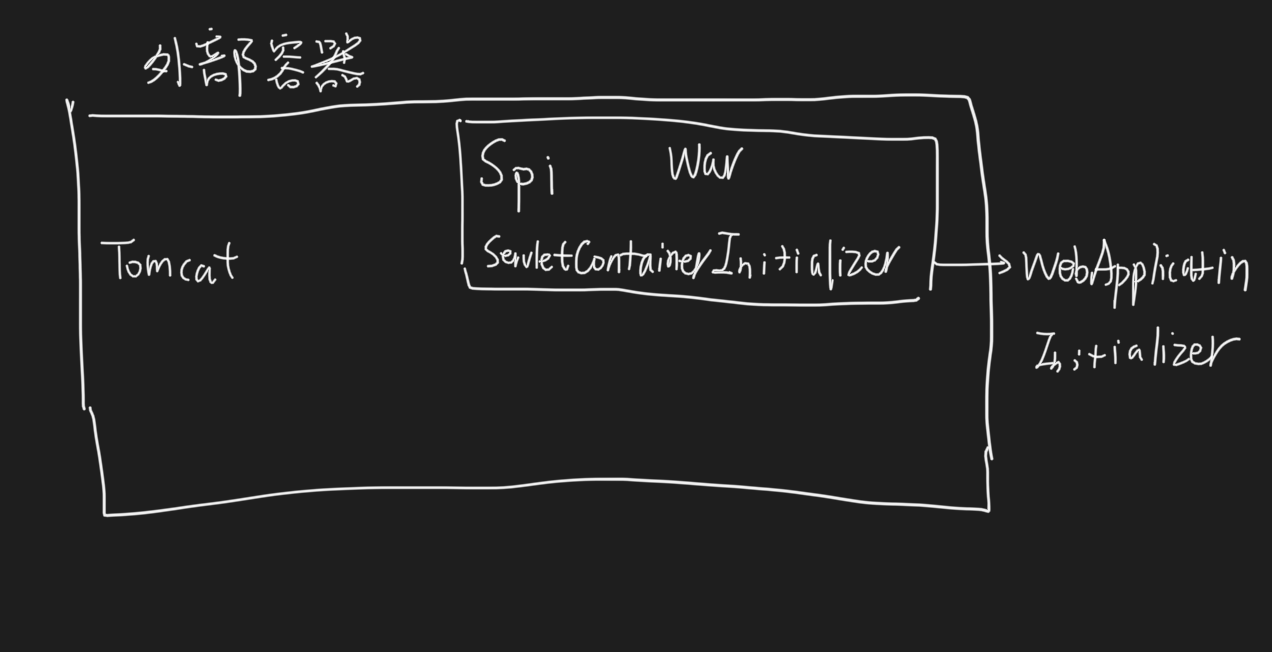 外部容器
Spi War
Tomcat
ServletContainerInitializer
WebApplicatin
Initializer